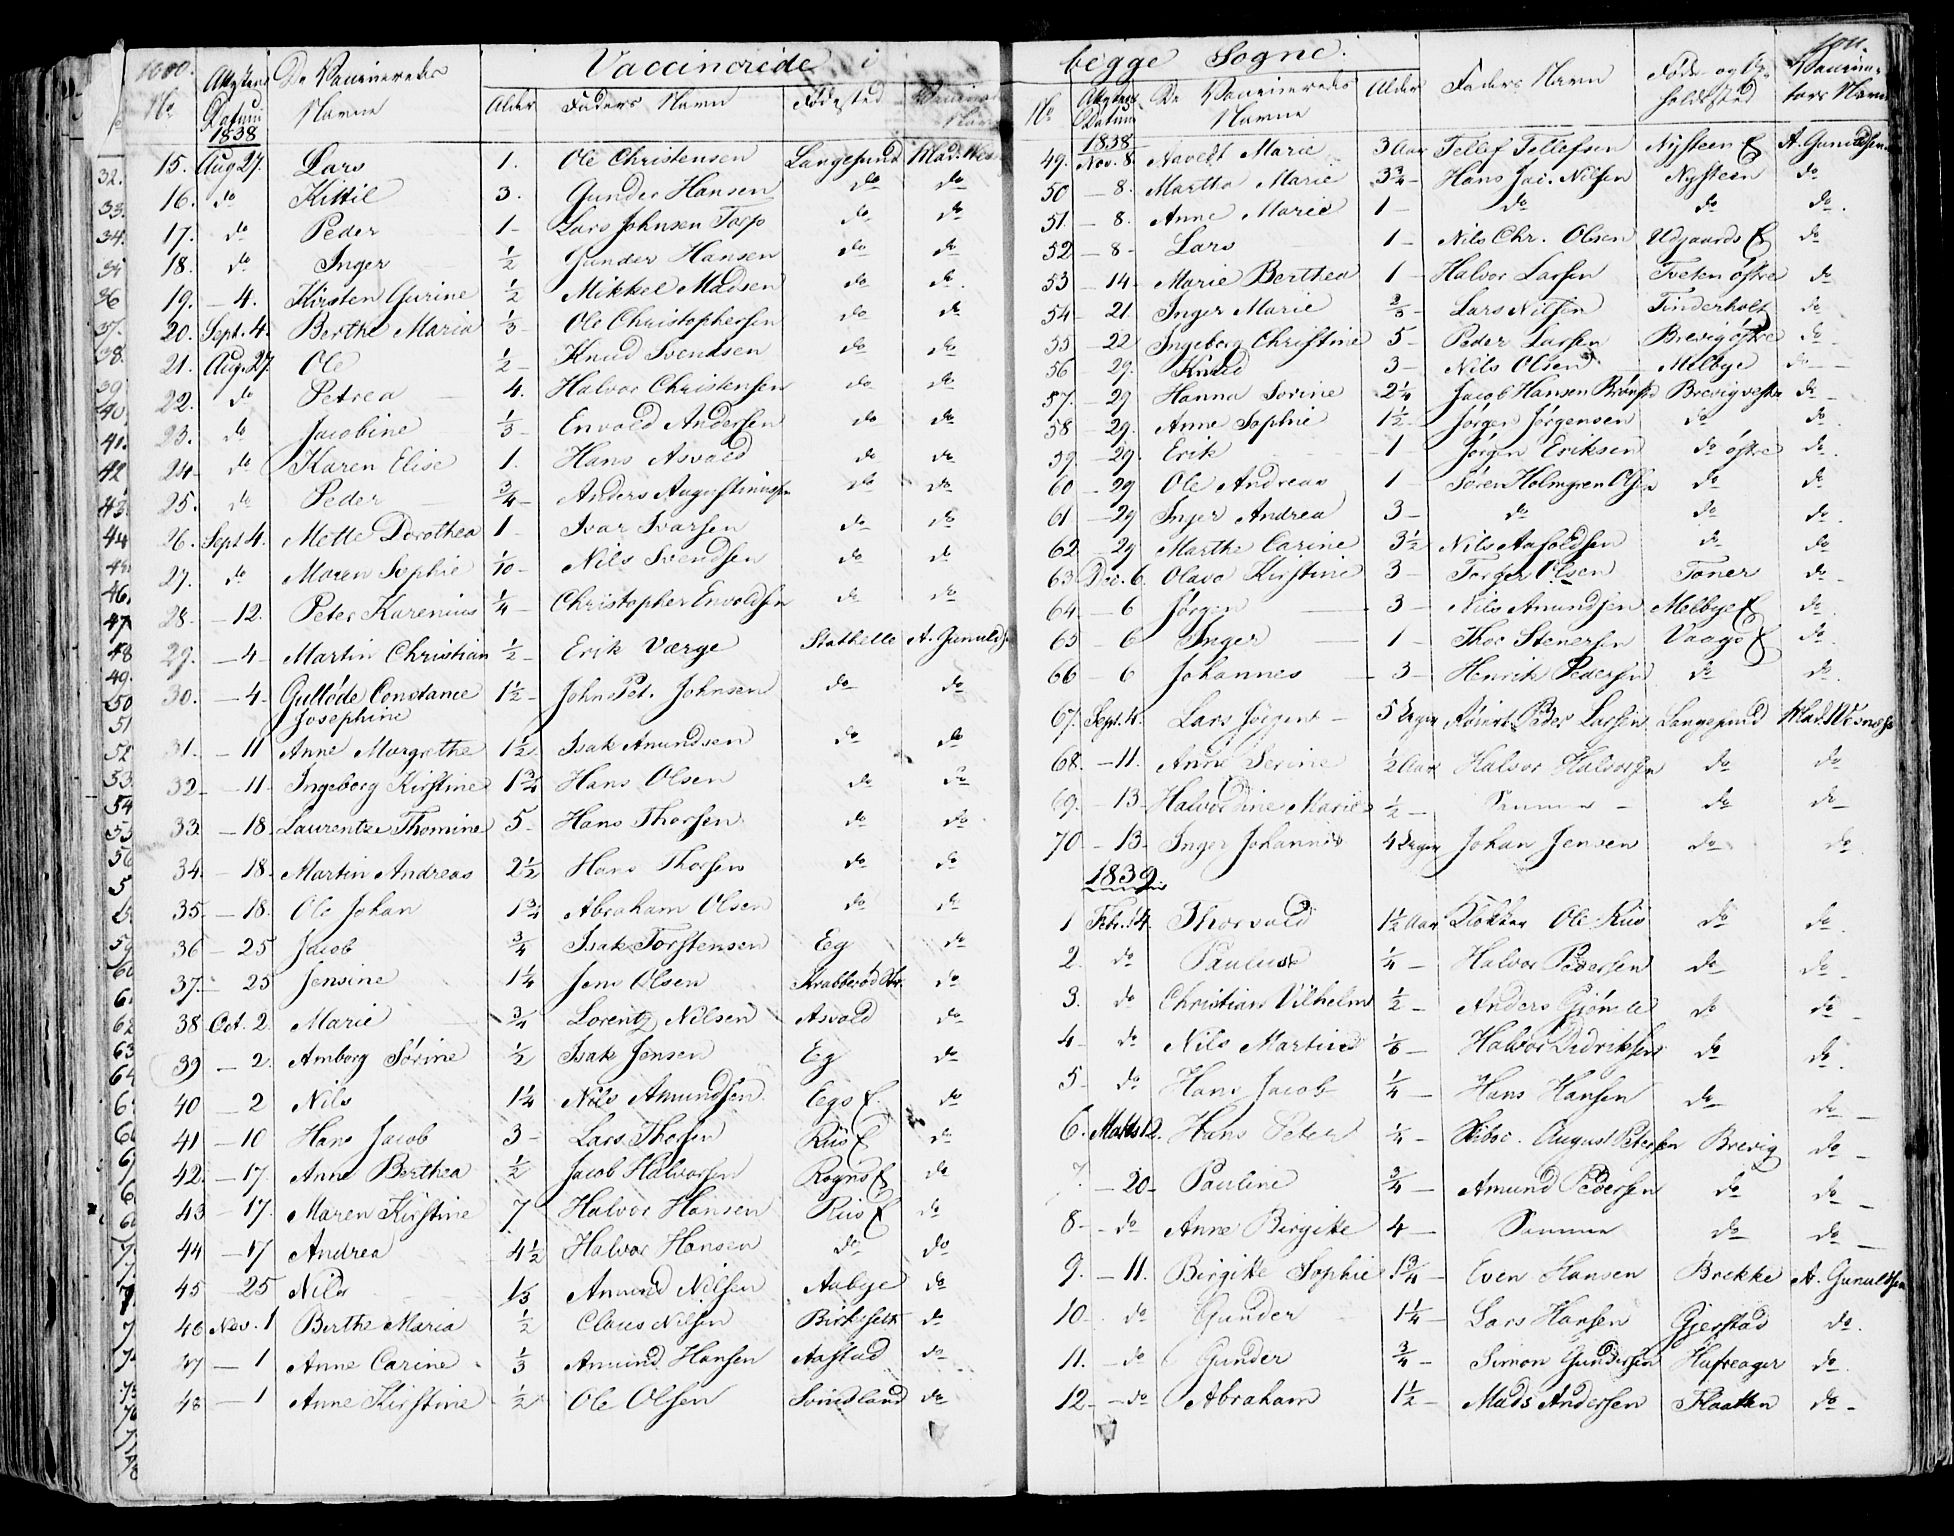 1010. Vaccinerede i
No Attestens Datum De Vaccineredes Navne Alder Faders Navn Fødested
1838
15. Aug 27. Lars 1. Ole Christensen Langesund Mad.
16. do Kittil 3. Gunder Hansen do do
17. do Peder 1 - Lars Johnsen Torp do do
18. do Inger 1/2 Gunder Hansen do do
19. - 4. Kirsten Gurine 1/2 Mikkel Madsen do do
20. Sept. 4. Berthe Maria 1/3 Ole Christophersen do do
21. Aug. 27 Ole 1/2 Knud Svendsen do do
22. do Petrea 4. Halvor Christensen do do
23. do Jacobine 1/3 Envold Andersen do do
24 do Karen Elise 1. Hans Asvald do do
25. do Peder 3/4 Anders Augustinussen do do
26. Sept 4. Mette Dorothea 1 Ivar Ivarsen do do
27. do Maren Sophie 1/10 Nils Svendsen do do
28. - 12. Peter Karenius 1/4 Christopher Envoldsen do do
29. - 4 - Martin Christian 1/2 Erik Værge Stathelle A. Gunuldsen
30. - 4. Gulløde Constance 1 1/2 John Pet. Johnsen do do
Josephine
31. - 11 Anne Margrethe 1 1/2 Isak Amundsen do do
32 - 11 - Ingeborg Kirstine 1 3/4 Hans Olsen do do
33 - 18. Laurentze Thomine 5 - Hans Thorsen do do
34. - 18. Martin Andreas 2 1/2 Hans Thorsen do do
35. - 18. Ole Johan 1 3/4 Abraham Olsen do do
36 - 25 Jacob 3/4 Isak Torstensen Eg do
37. - 25 Jensine 1 1/4 Jens Olsen Krabberød do
38 Oct. 2. Marie 3/4 Lorentz Nilsen Asvald do
39 - 2. Amborg Sørine 1/2 Isak Jensen Eg do
40 - 2 Nils 1 1/4 Nils Amundsen Egs E. do
41 - 10 Hans Jacob 3 - Lars Thorsen Riis E do
42. - 17. Anne Berthea 1/2 Jacob Halvorsen Rogns E do
43 - 17. Maren Kirstine 7. Halvor Hansen Riis E do
44 - 17 Andrea 4 1/2 Halvor Hansen do do
45 25 Nils 1/3 Amund Nilsen Aabye do
46 Nov. 1 Berthe Maria 1/2 Claus Nilsen do
47 - 1 Anne Carine 1/3 Amund Hansen Aastad do
48 - 1 Anne Kirstine 1/2 Ole Olsen Svinsland do
begge Sogne. 1011.
No Attestens Datum De Vaccineredes Navne Alder Faders Navn Føde og Opholdsted Vaccinators Navn
1838
49. Nov. 8. Aavedt Marie 3 Aar Tellef Tellefsen Nysteen E A. Gunuldsen
50 - 8. Martha Marie 3 3/4 - Hans Jac. Nilsen Nysteen do
51. - 8. Anne Marie 1 - do do do
52 - 8 - Lars 1 - Nils Chr. Olsen Udgaards E do
53 - 14 Marie Berthea 1 Halvor Larsen Tveten østre do
54 - 21 Inger Marie 2/3 - Lars Nilsen Tinderholt do
55 - 22 Ingeborg Christine 5 - Peder Larsen Brevig østre do
56 - 29. Knud 3 - Nils Olsen Melbye do
57. - 29 Hanna Sorine 2 1/4 Jacob Hansen Brevig vestre do
58 - 29. Anne Sophie 1 1/2 - Jørgen Jørgensen do do
59 - 29. Erik 1 Jørgen Eriksen do østre do
60 - 29 Ole Andreas 1 - Søren Holmgren Olsen do do
61 - 29 Inger Andrea 3 - do do do
62 - 29 Marthe Carine 3 1/2 Nils Aasoldsen do do
63 Dec. 6. Olava Kirstine 3 - Torger Olsen Toner do
64 - 6 Jørgen 3 - Nils Amundsen Melbye E do
65 - 6 Inger 1 - Thor Stenersen Vaags E do
66 - 6 Johannes 3 - Henrik Pedersen do do
67. Sept. 4. Lars Jørgen 5 Uger Peder Larsen Langesund Mad.
68. - 11. Anne Serine 1/2 Aar Halvor Halvorsen do do
69. - 13 - Halvordine Marie 1/2 - Samme - do do
70 - 13 - Inger Johanne 4 Uger Johan Jensen do do
1839
1 Febr. 4. Thorvald 1 1/2 Aar Klokker Ole Riis do do
2. do Paulus 1/4 - Halvor Pedersen do do
3. do Christian Vilhelm 1/2 - Anders do do
4 do Nils Martin Halvor Didriksen do do
5 do Hans Jacob 1/4 - Hans Hansen do do
6. Marts 12. Hans Peter 1/4 - August Petersen Brevig do
7. - 20 - Pauline 3/4 - Amund Pedersen do do
8 - do Anne Birgitte 4 - Samme do do
9. - 11. Birgitte Sophie 1 3/4 Even Hansen Brekke A. Gunuldsen
10 - do Gunder 1 1/4 - Lars Hansen Gjerstad do
11. - do Gunder 3/4 - Simon Gundersen Hafreager do
12. - do Abraham 1 1/2 - Mads Andersen Flaatten do